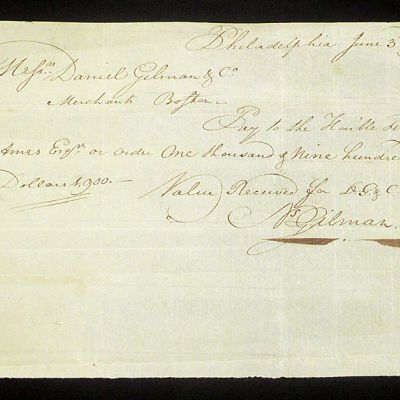 Philadelphia June 3
Messrs Daniel Gilman & Co
Merchants Boston
Pay to the Honble
Ames Esqr or order One thousand & Nine hundred
Dollars 1,900.— Value Received for D G & C
Ns Gilman